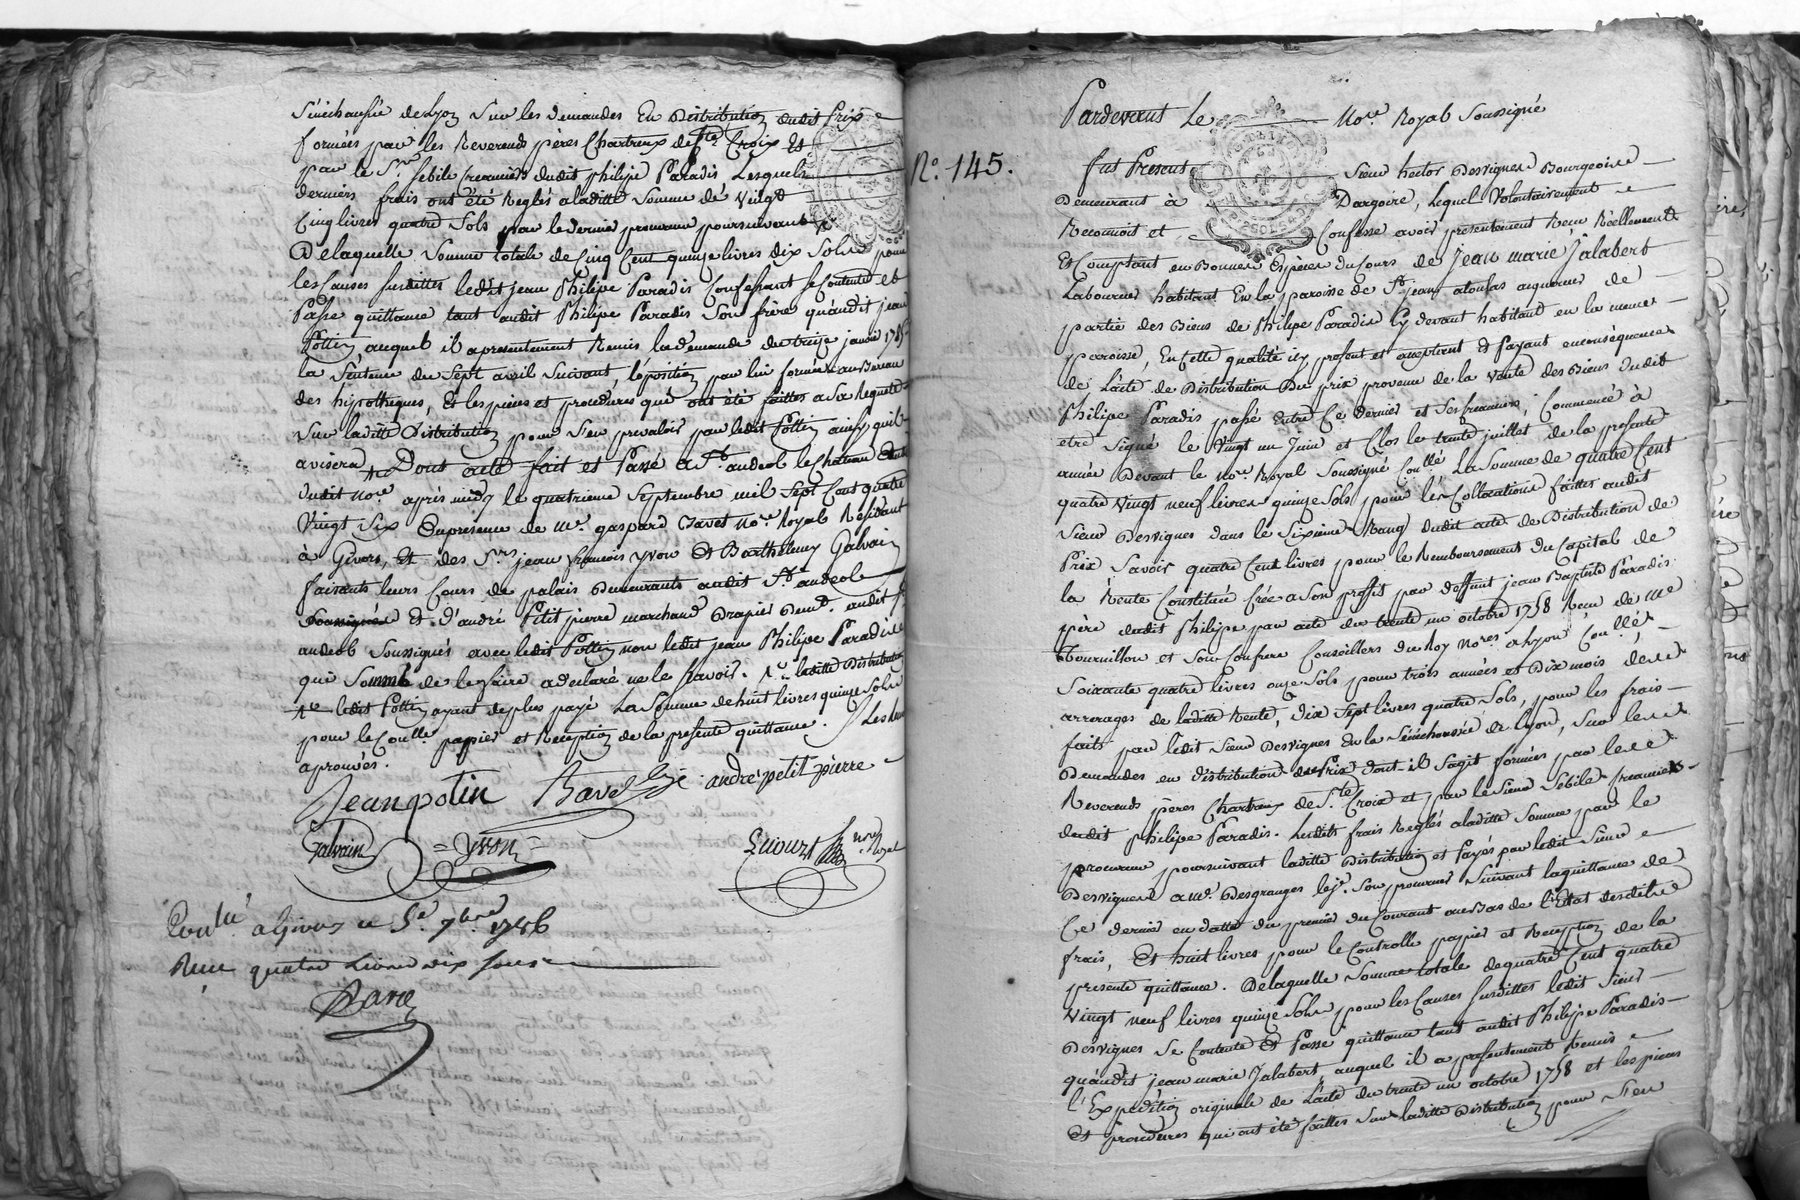 Sénéchaussée de Lyon Sur les demandes En Distribution dudit Prix
formées par les Reverends pères Chartreux de Ste Croix Et
par le Sr. Sebile creanciers dudit philipe Paradis Lesquels
derniers frais ont été Reglés a laditte Somme de Vingt
Cinq livres quatre Sols par le dernier procureur poursuivant
De laquelle Somme totale de Cinq Cent quinze livres dix Sols pour
les Causes susdittes ledit jean Philipe Paradis Confessant se Contente et
Passe quittance tant audit Philipe Paradis Son frère qu'audit jean
Pottin auquel il a presentement Remis la demande du treize janvier 1785
la Sentence du Sept avril Suivant, loposition par lui formée au Bureau
des hipotheques, Et les pieces et procedures qui ont été faittes a Sa Requete
Sur laditte Distribution pour s'en prevaloir par ledit Pottin ainsy qu'il
avisera, Dont acte fait et Passé a St. andeol le Chateau Etude
dudit nore après midy le quatrieme Septembre mil Sept Cent quatre
Vingt Six En presence de me. gaspard Javet nore Royal Residant
à Givors, Et des Srs jean francois yvon Et Barthelemy Galvain
faisants leurs Cours de palais Demeurants audit St. andeol
Soussignés Et d'andré Petit pierre marchand Drapier Demt. audit St
andeol Soussignés avec ledit Pottin non ledit jean Philipe Paradis
que Sommé de le faire a declaré ne le Scavoir. laditte Distribution
ledit Pottin ayant de plus payé La Somme de huit livres quinze Sols
pour le Conlle. papier et Reception de la presente quittance.
aprouvés.
Jean potin Javet andré petit pierre
Galvain = yvon =
Conlé a Givors le 5e. 7bre. 1786
Recu quatre Livres dix sous
Javet
N.º 145.
Pardevant Le Nore Royal Soussigné
fut Present Sieur hector Desvignes Bourgeois
Demeurant à Dargoire, Lequel Volontairement
Reconnoit et Confesse avoir presentement Reçu Réellement
Et Comptant en Bonnes Espèces du Cours de Jean marie Jalabert
Laboureur habitant En la paroisse de St. jean atoulas aquereur de
partie des Biens de Philipe Paradis Cy devant habitant en la meme
paroisse, En cette qualité icy present et acceptant Et Payant en consequence
de L'acte de Distribution du prix provenu de la Vente des Biens dudit
Philipe Paradis passé Entre Ce dernier et Ses creanciers, Commencé à
etre Signé le Vingt un Juin et Clos le trente juillet de la presente
année Devant le Nore Royal Soussigné Conllé La Somme de quatre Cent
quatre Vingt neuf livres quinze Sols pour les Collocations faittes audit
Sieur Desvignes dans le Sixieme Rang dudit acte de Distribution de
Prix Savoir quatre Cent livres pour le Remboursement du Capital de
la Rente Constituée Créé a Son profit par deffunt jean Baptiste Paradis
père dudit Philipe par acte du trente un octobre 1758 Reçu de Me
Tournillon et Son Confrere Conseillers du Roy nores a Lyon Conllé
Soixante quatre livres onze Sols pour trois années et Dix mois des
arrerages de laditte Rente, Dix Sept livres quatre Sols, pour les frais
faits par ledit Sieur Desvignes En la Sénéchaussée de Lyon, Sur les
Demandes en distribution de Prix dont il Sagit formées par les
Reverends pères Chartreux de Ste Croix et par le Sieur Sebile Creanciers
dudit Philipe Paradis. Lesdits frais Reglés a laditte Somme par le
procureur poursuivant laditte Distribution et Payés par ledit Sieur
Desvignes a me. Desgranges le je. Son procureur Suivant la quittance de
Ce dernier en datte du premier du Courant au Bas de l'Etat desdits
frais, Et huit livres pour le Controlle papier et Reception de la
presente quittance. De laquelle Somme totale de quatre Cent quatre
Vingt neuf livres quinze Sols pour les Causes susdittes ledit Sieur
Desvignes Se Contente Et Passe quittance tant audit Philipe Paradis
qu'audit jean marie Jalabert, auquel il a presentement Remis
l'Expedition originale de L'acte du trente un octobre 1758 et les pieces
Et procedures qui ont été faittes Sur laditte Distribution pour S'en